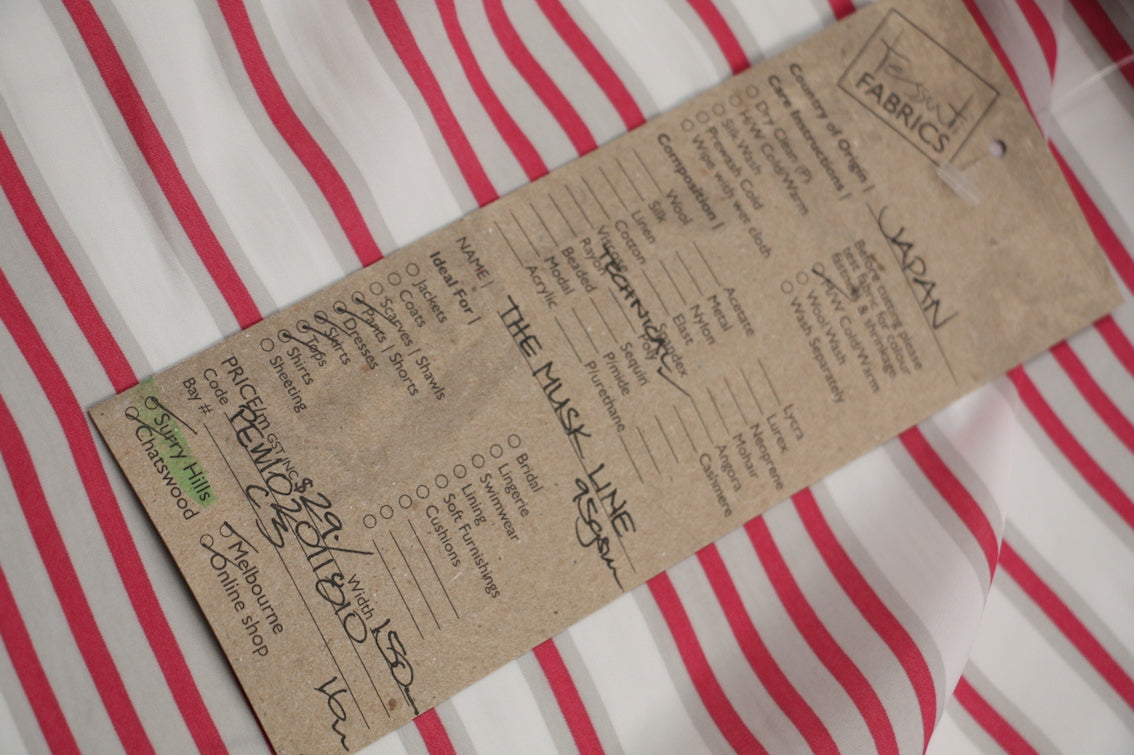 Tessuti
FABRICS
Country of Origin | JAPAN
Care Instructions |
Before cutting please
test fabric for colour
fastness & shrinkage
Dry Clean (P)
H/W Cold/Warm
Silk Wash
Prewash Cold
Wipe with wet cloth
H/W Cold/Warm
Wool Wash
Wash Separately
Composition |
Wool
Silk
Linen
Cotton
Viscose
Rayon
Beaded
Modal
Acrylic
Acetate
Metal
Nylon
Elast
Spandex
Poly
Sequin
P/mide
P/urethane
Lycra
Lurex
Neoprene
Mohair
Angora
Cashmere
TECHNICAL
NAME | THE MUSK LINE
95gsm
Ideal For |
Jackets
Coats
Scarves | Shawls
Pants | Shorts
Dresses
Skirts
Tops
Shirts
Sheeting
Bridal
Lingerie
Swimwear
Lining
Soft Furnishings
Cushions
PRICE/m GST INC $29./ Width 150
Code PEW10201810
Bay # C3
Surry Hills
Chatswood
Melbourne
Online shop